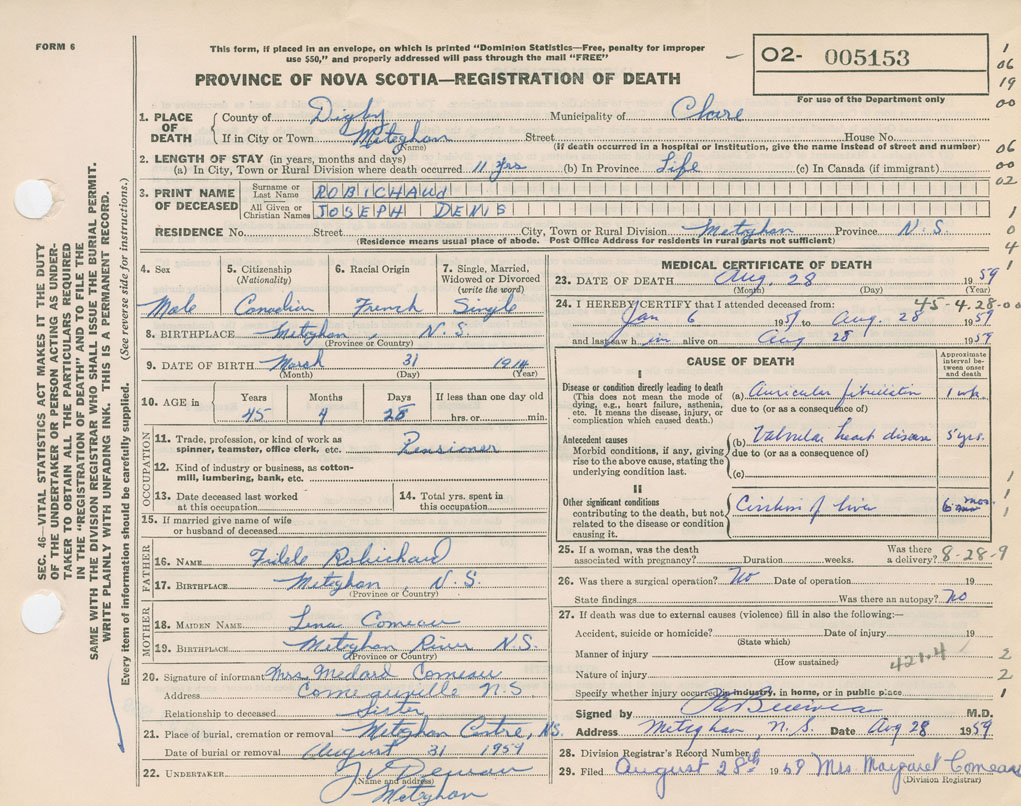 FORM 6
This form, if placed in an envelope, on which is printed "Dominion Statistics—Free, penalty for improper
use $50," and properly addressed will pass through the mail "FREE"
PROVINCE OF NOVA SCOTIA—REGISTRATION OF DEATH
O2- 005153
For use of the Department only
1
06
19
00
06
00
02
1
0
4
SEC. 46—VITAL STATISTICS ACT MAKES IT THE DUTY
OF THE UNDERTAKER OR PERSON ACTING AS UNDER-
TAKER TO OBTAIN ALL THE PARTICULARS REQUIRED
IN THE "REGISTRATION OF DEATH" AND TO FILE THE
SAME WITH THE DIVISION REGISTRAR WHO SHALL ISSUE THE BURIAL PERMIT.
WRITE PLAINLY WITH UNFADING INK. THIS IS A PERMANENT RECORD.
Every item of information should be carefully supplied. (See reverse side for instructions.)
1. PLACE OF DEATH
County of Digby Municipality of Clare
If in City or Town Meteghan Street House No.
(Name) (If death occurred in a hospital or Institution, give the name instead of street and number)
2. LENGTH OF STAY (in years, months and days)
(a) In City, Town or Rural Division where death occurred 11 yrs (b) In Province Life (c) In Canada (if immigrant)
3. PRINT NAME OF DECEASED
Surname or Last Name ROBICHAUD
All Given or Christian Names JOSEPH DENIS
RESIDENCE No. Street City, Town or Rural Division Meteghan Province N.S.
(Residence means usual place of abode. Post Office Address for residents in rural parts not sufficient)
4. Sex 5. Citizenship (Nationality) 6. Racial Origin 7. Single, Married, Widowed or Divorced (write the word)
Male Canadian French Single
8. BIRTHPLACE Meteghan, N.S.
(Province or Country)
9. DATE OF BIRTH March 31 1914
(Month) (Day) (Year)
10. AGE in Years Months Days If less than one day old
45 4 28 hrs. or min.
OCCUPATION
11. Trade, profession, or kind of work as spinner, teamster, office clerk, etc. Pensioner
12. Kind of industry or business, as cotton-mill, lumbering, bank, etc.
13. Date deceased last worked at this occupation
14. Total yrs. spent in this occupation
15. If married give name of wife or husband of deceased
FATHER
16. NAME Fidele Robichaud
17. BIRTHPLACE Meteghan, N.S.
(Province or Country)
MOTHER
18. MAIDEN NAME Lena Comeau
19. BIRTHPLACE Meteghan River N.S.
(Province or Country)
20. Signature of informant Mrs. Medard Comeau
Address Comeauville N.S.
Relationship to deceased Sister
21. Place of burial, cremation or removal Meteghan Centre, N.S.
Date of burial or removal August 31 1959
22. UNDERTAKER
(Name and address)
Meteghan
MEDICAL CERTIFICATE OF DEATH
23. DATE OF DEATH Aug. 28 1959
(Month) (Day) (Year)
45-4.28-00
24. I HEREBY CERTIFY that I attended deceased from:
Jan 6 1959 to Aug. 28 1959
and last saw him alive on Aug 28 1959
CAUSE OF DEATH
Approximate interval between onset and death
I
Disease or condition directly leading to death
(This does not mean the mode of dying, e.g., heart failure, asthenia, etc. It means the disease, injury, or complication which caused death.)
(a) Auricular fibrillation 1 wk.
due to (or as a consequence of)
Antecedent causes
Morbid conditions, if any, giving rise to the above cause, stating the underlying condition last.
(b) Valvular heart disease 5 yrs.
due to (or as a consequence of)
(c)
II
Other significant conditions
contributing to the death, but not related to the disease or condition causing it.
Cirrhosis of liver 6 mos.
1
1
1
25. If a woman, was the death associated with pregnancy? Duration weeks. Was there a delivery?
8-28-9
26. Was there a surgical operation? No Date of operation 19
State findings Was there an autopsy? No
27. If death was due to external causes (violence) fill in also the following:—
Accident, suicide or homicide? Date of injury 19
(State which)
Manner of injury
(How sustained)
421.4
Nature of injury
2
2
1
Specify whether injury occurred in industry, in home, or in public place
Signed by M.D.
Address Meteghan, N.S. Date Aug 28 1959
28. Division Registrar's Record Number
29. Filed August 28th 1959 Mrs Margaret Comeau
(Division Registrar)